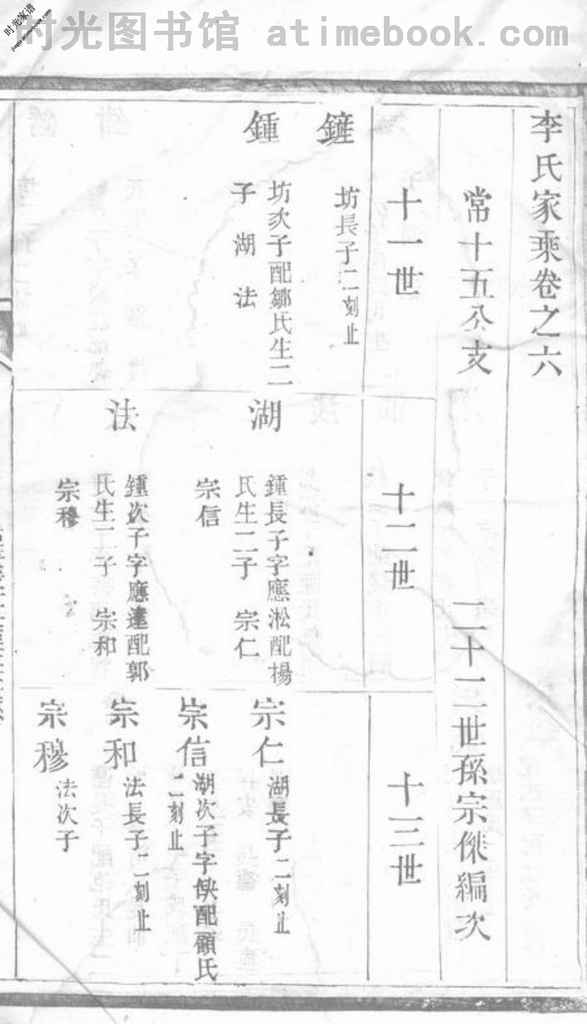 时光图书馆 atimebook.com
时光家谱
李氏家乘卷之六
常十五公支
二十二世孫宗傑編次
十一世
鏟
坊長子二刻止
鍾
坊次子配鄒氏生二
子 湖 法
十二世
湖
鍾長子字應淞配楊
氏生二子 宗仁
宗信
法
鍾次子字應達配郭
氏生二子 宗和
宗穆
十三世
宗仁
湖長子二刻止
宗信
湖次子字缺配顧氏
二刻止
宗和
法長子二刻止
宗穆
法次子